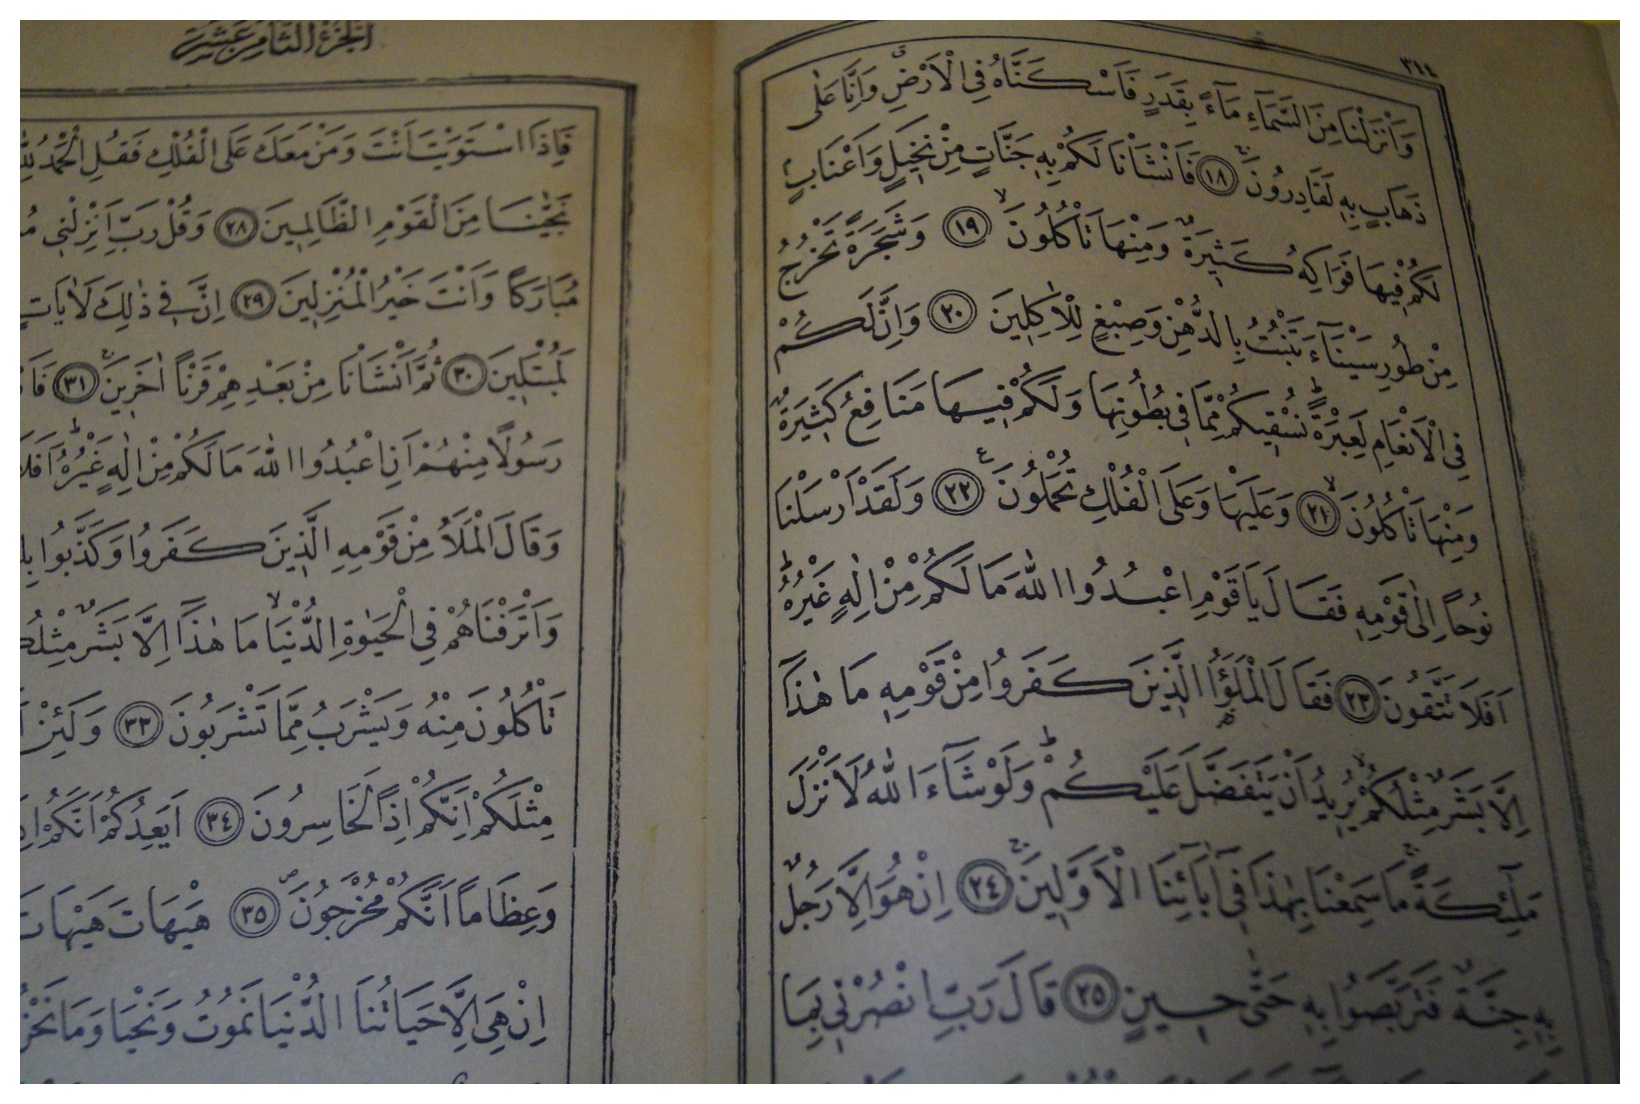 ٣١٤
وَاَنْزَلْنَا مِنَ السَّمَآءِ مَآءً بِقَدَرٍ فَاَسْكَنَّاهُ فِى الْاَرْضِ وَاِنَّا عَلٰى
ذَهَابٍ بِهٖ لَقَادِرُونَ ﴿١٨﴾ فَاَنْشَاْنَا لَكُمْ بِهٖ جَنَّاتٍ مِنْ نَخٖيلٍ وَاَعْنَابٍ
لَكُمْ فٖيهَا فَوَاكِهُ كَثٖيرَةٌ وَمِنْهَا تَاْكُلُونَ ﴿١٩﴾ وَشَجَرَةً تَخْرُجُ
مِنْ طُورِ سَيْنَآءَ تَنْبُتُ بِالدُّهْنِ وَصِبْغٍ لِلْاٰكِلٖينَ ﴿٢٠﴾ وَاِنَّ لَكُمْ
فِى الْاَنْعَامِ لَعِبْرَةً نُسْقٖيكُمْ مِمَّا فٖى بُطُونِهَا وَلَكُمْ فٖيهَا مَنَافِعُ كَثٖيرَةٌ
وَمِنْهَا تَاْكُلُونَ ﴿٢١﴾ وَعَلَيْهَا وَعَلَى الْفُلْكِ تُحْمَلُونَ ﴿٢٢﴾ وَلَقَدْ اَرْسَلْنَا
نُوحًا اِلٰى قَوْمِهٖ فَقَالَ يَا قَوْمِ اعْبُدُوا اللّٰهَ مَا لَكُمْ مِنْ اِلٰهٍ غَيْرُهُ
اَفَلَا تَتَّقُونَ ﴿٢٣﴾ فَقَالَ الْمَلَؤُا الَّذٖينَ كَفَرُوا مِنْ قَوْمِهٖ مَا هٰذَا
اِلَّا بَشَرٌ مِثْلُكُمْ يُرٖيدُ اَنْ يَتَفَضَّلَ عَلَيْكُمْ وَلَوْ شَآءَ اللّٰهُ لَاَنْزَلَ
مَلٰٓئِكَةً مَا سَمِعْنَا بِهٰذَا فٖٓى اٰبَآئِنَا الْاَوَّلٖينَ ﴿٢٤﴾ اِنْ هُوَ اِلَّا رَجُلٌ
بِهٖ جِنَّةٌ فَتَرَبَّصُوا بِهٖ حَتّٰى حٖينٍ ﴿٢٥﴾ قَالَ رَبِّ انْصُرْنٖى بِمَا
الجزء الثامن عشر
فَاِذَا اسْتَوَيْتَ اَنْتَ وَمَنْ مَعَكَ عَلَى الْفُلْكِ فَقُلِ الْحَمْدُ لِلّٰهِ
نَجّٰينَا مِنَ الْقَوْمِ الظَّالِمٖينَ ﴿٢٨﴾ وَقُلْ رَبِّ اَنْزِلْنٖى
مُبَارَكًا وَاَنْتَ خَيْرُ الْمُنْزِلٖينَ ﴿٢٩﴾ اِنَّ فٖى ذٰلِكَ لَاٰيَاتٍ
لَمُبْتَلٖينَ ﴿٣٠﴾ ثُمَّ اَنْشَاْنَا مِنْ بَعْدِهِمْ قَرْنًا اٰخَرٖينَ ﴿٣١﴾
رَسُولًا مِنْهُمْ اَنِ اعْبُدُوا اللّٰهَ مَا لَكُمْ مِنْ اِلٰهٍ غَيْرُهُ اَفَلَا
وَقَالَ الْمَلَاُ مِنْ قَوْمِهِ الَّذٖينَ كَفَرُوا وَكَذَّبُوا
وَاَتْرَفْنَاهُمْ فِى الْحَيٰوةِ الدُّنْيَا مَا هٰذَا اِلَّا بَشَرٌ
تَاْكُلُونَ مِنْهُ وَيَشْرَبُ مِمَّا تَشْرَبُونَ ﴿٣٣﴾ وَلَئِنْ
مِثْلَكُمْ اِنَّكُمْ اِذًا لَخَاسِرُونَ ﴿٣٤﴾ اَيَعِدُكُمْ اَنَّكُمْ
وَعِظَامًا اَنَّكُمْ مُخْرَجُونَ ﴿٣٥﴾ هَيْهَاتَ هَيْهَاتَ
اِنْ هِىَ اِلَّا حَيَاتُنَا الدُّنْيَا نَمُوتُ وَنَحْيَا وَمَا